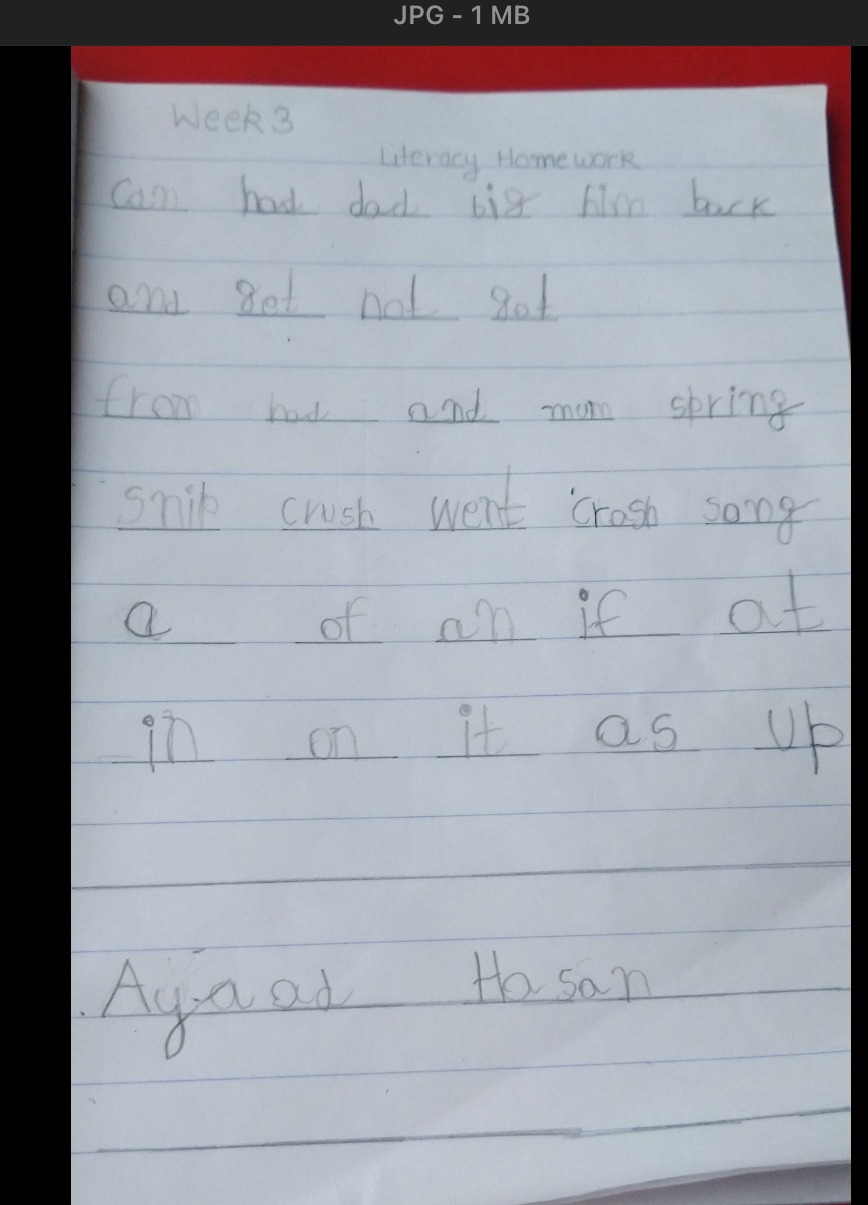 JPG - 1 MB
Week 3
Literacy Homework
Can had dad big him back
and get not got
from had and mum spring
snip crush went crash song
a of an if at
in on it as up
Ayaad Hasan